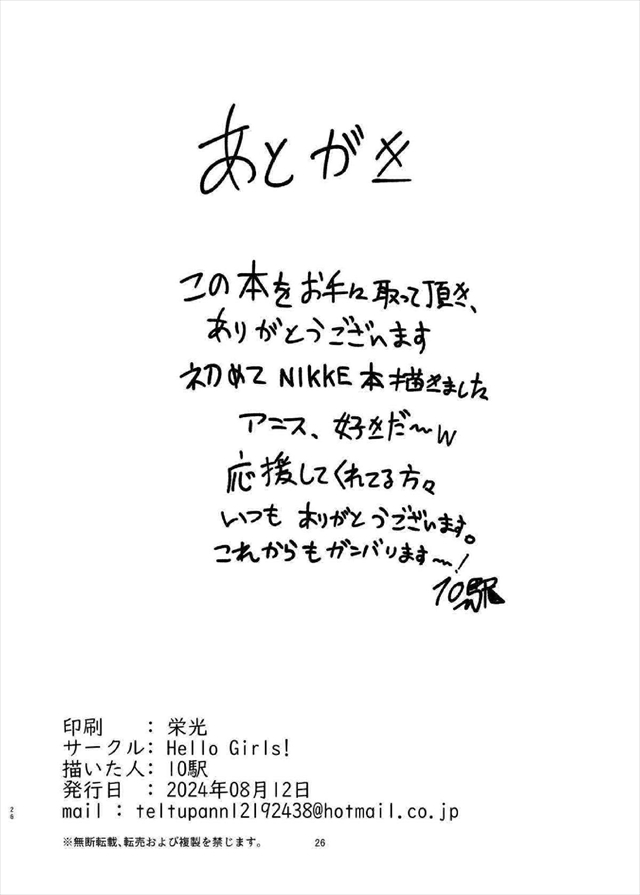 あとがき
この本をお手に取って頂き、
ありがとうございます
初めてNIKKE本描きました
アニス、好きだ〜w
応援してくれてる方々
いつもありがとうございます。
これからもガンバります〜!
10駅
印刷 : 栄光
サークル: Hello Girls!
描いた人: 10駅
発行日 : 2024年08月12日
mail : teltupann12192438@hotmail.co.jp
※無断転載、転売および複製を禁じます。 26
26